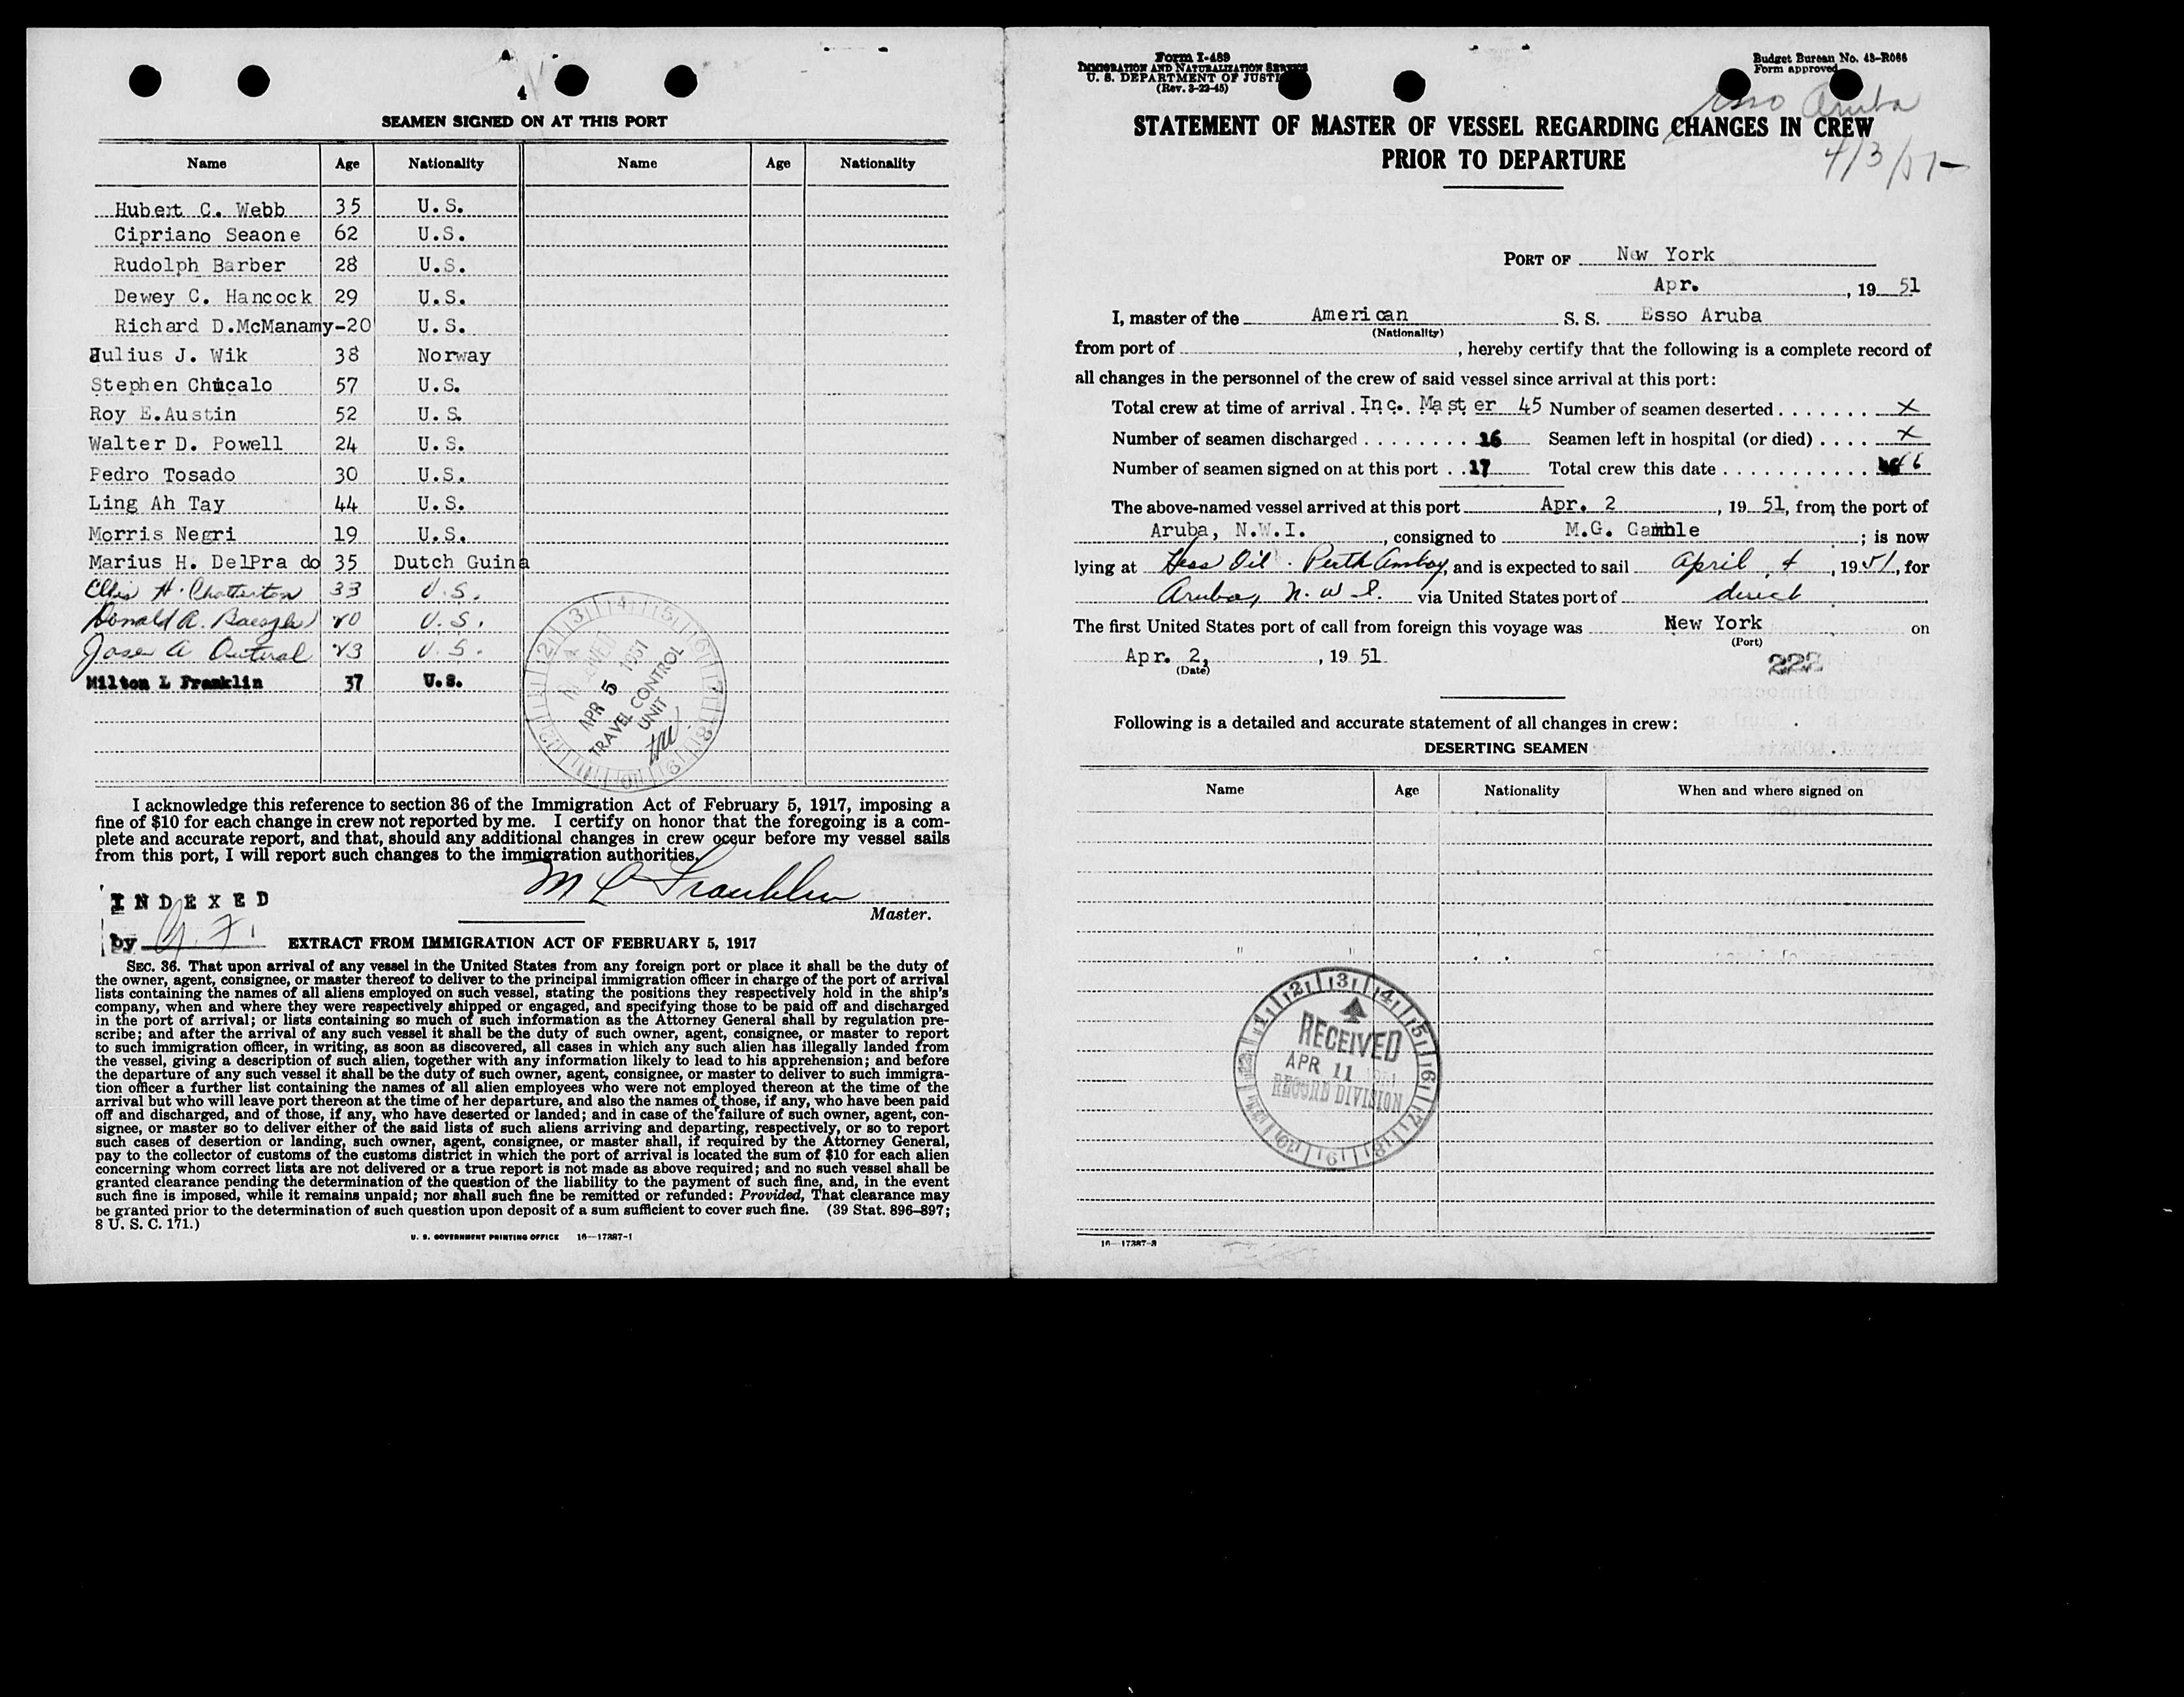 4
SEAMEN SIGNED ON AT THIS PORT
Name Age Nationality Name Age Nationality
Hubert C. Webb 35 U.S.
Cipriano Seaone 62 U.S.
Rudolph Barber 28 U.S.
Dewey C. Hancock 29 U.S.
Richard D.McManamy-20 U.S.
Julius J. Wik 38 Norway
Stephen Chucalo 57 U.S.
Roy E.Austin 52 U.S.
Walter D. Powell 24 U.S.
Pedro Tosado 30 U.S.
Ling Ah Tay 44 U.S.
Morris Negri 19 U.S.
Marius H. DelPra do 35 Dutch Guina
Ellis H. Chatterton 33 U.S.
Donald A. 20 U.S.
Jose A 23 U.S.
Milton L Franklin 37 U.S.
APR 5 1951
TRAVEL CONTROL
UNIT
I acknowledge this reference to section 36 of the Immigration Act of February 5, 1917, imposing a
fine of $10 for each change in crew not reported by me. I certify on honor that the foregoing is a com-
plete and accurate report, and that, should any additional changes in crew occur before my vessel sails
from this port, I will report such changes to the immigration authorities.
M L Franklin
Master.
INDEXED
by
EXTRACT FROM IMMIGRATION ACT OF FEBRUARY 5, 1917
SEC. 36. That upon arrival of any vessel in the United States from any foreign port or place it shall be the duty of
the owner, agent, consignee, or master thereof to deliver to the principal immigration officer in charge of the port of arrival
lists containing the names of all aliens employed on such vessel, stating the positions they respectively hold in the ship's
company, when and where they were respectively shipped or engaged, and specifying those to be paid off and discharged
in the port of arrival; or lists containing so much of such information as the Attorney General shall by regulation pre-
scribe; and after the arrival of any such vessel it shall be the duty of such owner, agent, consignee, or master to report
to such immigration officer, in writing, as soon as discovered, all cases in which any such alien has illegally landed from
the vessel, giving a description of such alien, together with any information likely to lead to his apprehension; and before
the departure of any such vessel it shall be the duty of such owner, agent, consignee, or master to deliver to such immigra-
tion officer a further list containing the names of all alien employees who were not employed thereon at the time of the
arrival but who will leave port thereon at the time of her departure, and also the names of those, if any, who have been paid
off and discharged, and of those, if any, who have deserted or landed; and in case of the failure of such owner, agent, con-
signee, or master so to deliver either of the said lists of such aliens arriving and departing, respectively, or so to report
such cases of desertion or landing, such owner, agent, consignee, or master shall, if required by the Attorney General,
pay to the collector of customs of the customs district in which the port of arrival is located the sum of $10 for each alien
concerning whom correct lists are not delivered or a true report is not made as above required; and no such vessel shall be
granted clearance pending the determination of the question of the liability to the payment of such fine, and, in the event
such fine is imposed, while it remains unpaid; nor shall such fine be remitted or refunded: Provided, That clearance may
be granted prior to the determination of such question upon deposit of a sum sufficient to cover such fine. (39 Stat. 896–897;
8 U. S. C. 171.)
U. S. GOVERNMENT PRINTING OFFICE 16—17387-1
Form I-489
IMMIGRATION AND NATURALIZATION SERVICE
U. S. DEPARTMENT OF JUSTI
(Rev. 3-22-45)
Budget Bureau No. 43-R066
Form approved
Esso Aruba
4/3/51
STATEMENT OF MASTER OF VESSEL REGARDING CHANGES IN CREW
PRIOR TO DEPARTURE
PORT OF New York
Apr. , 19 51
I, master of the American S. S. Esso Aruba
(Nationality)
from port of , hereby certify that the following is a complete record of
all changes in the personnel of the crew of said vessel since arrival at this port:
Total crew at time of arrival . Inc. Master 45 Number of seamen deserted . . . . . . . X
Number of seamen discharged . . . . . . . . 16 Seamen left in hospital (or died) . . . . X
Number of seamen signed on at this port . . 17 Total crew this date . . . . . . . . . . . 46
The above-named vessel arrived at this port Apr. 2 , 19 51, from the port of
Aruba, N.W.I. , consigned to M.G. Gamble ; is now
lying at Hess Oil - Perth Amboy, and is expected to sail April 4 , 1951, for
Aruba, N.W.I. via United States port of direct
The first United States port of call from foreign this voyage was New York on
(Port)
Apr. 2, , 19 51
(Date)
222
Following is a detailed and accurate statement of all changes in crew:
DESERTING SEAMEN
Name Age Nationality When and where signed on
RECEIVED
APR 11 1951
RECORD DIVISION
16—17387-3